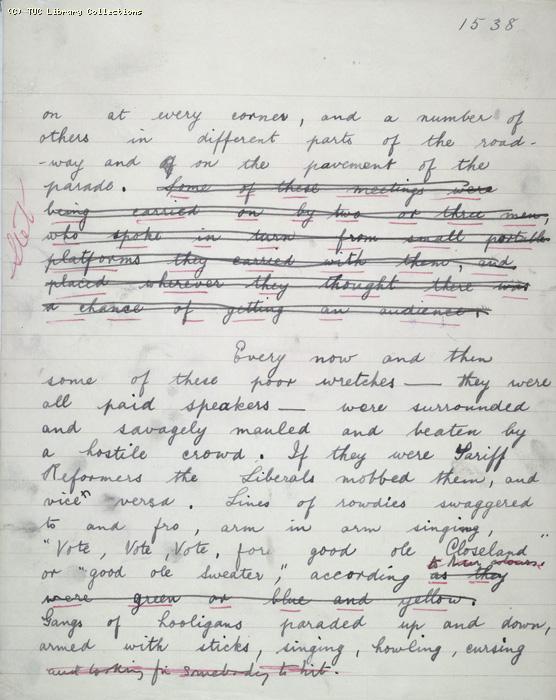 (C) TUC Library Collections
1538
on at every corner, and a number of
others in different parts of the road-
-way and on the pavement of the
parade. Some of these meetings were
being carried on by two or three men,
who spoke in turn from small portable
platforms they carried with them, and
placed wherever they thought there was
a chance of getting an audience.
Stet
Every now and then
some of these poor wretches — they were
all paid speakers — were surrounded
and savagely mauled and beaten by
a hostile crowd. If they were Tariff
Reformers the Liberals mobbed them, and
vice versa. Lines of rowdies swaggered
to and fro, arm in arm singing,
"Vote, Vote, Vote, for good ole Closeland"
to their colours.
or "good ole Sweater," according as they
were green or blue and yellow.
Gangs of hooligans paraded up and down,
armed with sticks, singing, howling, cursing
and looking for somebody to hit.